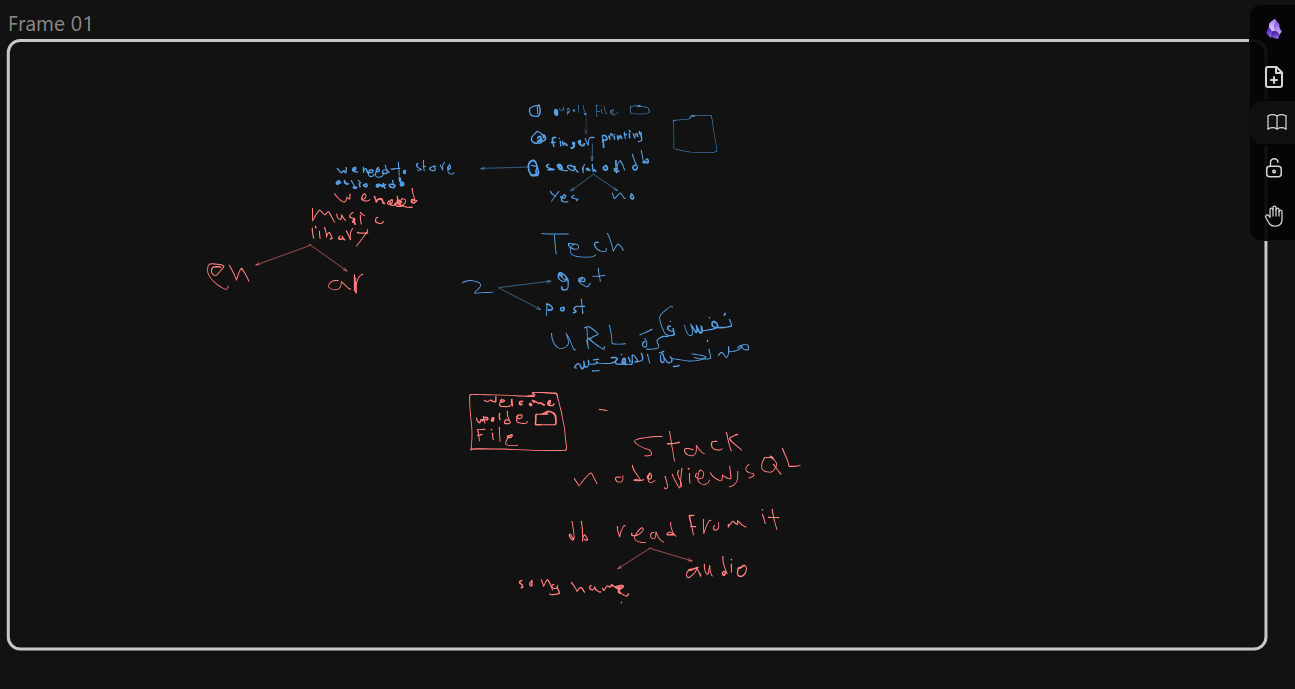 Frame 01
① file
② finger printing
③ search on db
we need to store
audio at db
Yes
no
we need
Music
libary
en
ar
Tech
2
get
post
URL نفس فكرة
من ناحية
welcome
File
Stack
node, view, SQL
db read from it
song name
audio